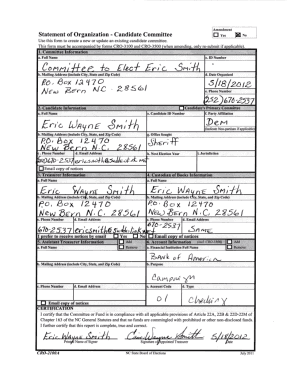 Statement of Organization - Candidate Committee
Amendment
Yes No
Use this form to create a new or update an existing candidate committee.
This form must be accompanied by forms CRO-3100 and CRO-3500 (when amending, only re-submit if applicable).
1. Committee Information
a. Full Name
c. ID Number
Committee to Elect Eric Smith
b. Mailing Address (include City, State and Zip Code)
d. Date Organized
P.O. Box 12470
5/18/2012
New Bern NC. 28561
e. Phone Number
(252) 670-2537
2. Candidate Information
Candidate's Primary Committee
a. Full Name
c. Candidate ID Number
f. Party Affiliation
Eric Wayne Smith
Dem
b. Mailing Address (include City, State and Zip Code)
g. Office Sought
P.O. Box 12470
Sheriff
New Bern N.C. 28561
c. Phone Number
d. Email Address
h. Next Election Year
i. Jurisdiction
Email copy of notices
3. Treasurer Information
4. Custodian of Books Information
a. Full Name
a. Full Name
Eric Wayne Smith
Eric Wayne Smith
b. Mailing Address (include City, State and Zip Code)
b. Mailing Address (include City, State and Zip Code)
P.O. Box 12470
P.O. Box 12470
New Bern N.C. 28561
New Bern N.C. 28561
c. Phone Number
d. Email Address
c. Phone Number
d. Email Address
670-2537
670-2537
Same
I prefer to receive notices by email
Yes
No
Email copy of notices
5. Assistant Treasurer Information
Add
6. Account Information
Add
a. Full Name
Remove
a. Financial Institution Full Name
Remove
Bank of America
b. Mailing Address (include City, State and Zip Code)
b. Purpose
Campaign
c. Phone Number
d. Email Address
c. Account Code
d. Type
01
Checking
Email copy of notices
CERTIFICATION
I certify that the Committee or Fund is in compliance with all applicable provisions of Article 22A, 22B & 22D-22M of
Chapter 163 of the NC General Statutes and that no funds are commingled with prohibited or other non-disclosed funds.
I further certify that this report is complete, true and correct.
Eric Wayne Smith
5/18/2012
Printed Name of Signer
Signature of Appointed Treasurer
Date
CRO-2100A
NC State Board of Elections
July 2011